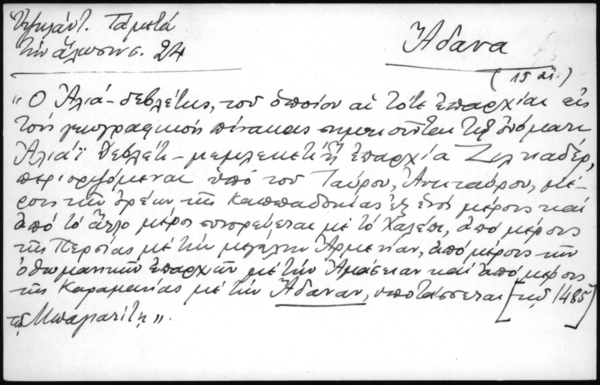 Ὑψηλάντ. Τὰ μετὰ
τὴν ἅλωσιν σ. 24
Ἄδανα
(15 αἰ.)
"Ὁ Ἀλιά-δεβλέτης, τοῦ ὁποίου αἱ τότε ἐπαρχίαι εἰς
τοὺς γεωγραφικοὺς πίνακας σημειοῦνται τῷ ὀνόματι
Ἀλιαϊ δεβλέτ-μεμλεκετὶ ἢ ἐπαρχία Ζιλκαδέρ,
περιοριζόμεναι ὑπὸ τοῦ Ταύρου, Ἀντιταύρου, μέ-
ρους τῶν ὀρέων τῆς Καππαδοκίας ἐξ ἑνὸς μέρους καὶ
ἀπὸ τὸ ἄλλο μέρος συνορεύεται μὲ τὸ Χαλέπι, ἀπὸ μέρους
τῆς Περσίας μὲ τὴν μεγάλην Ἀρμενίαν, ἀπὸ μέρους τῶν
ὀθωμανικῶν ἐπαρχιῶν μὲ τὴν Ἀμάσειαν καὶ ἀπὸ μέρους
τῆς Καραμανίας μὲ τὴν Ἄδαναν, ὑποτάσσεται [τῷ 1485]
τῷ Μπαγιαζίτῃ".